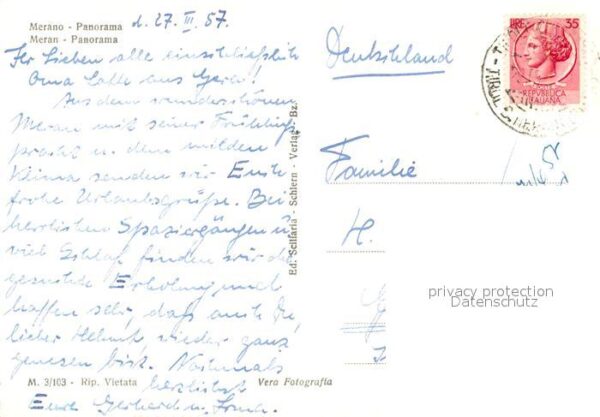 Merano - Panorama
Meran - Panorama
d. 27. III. 57.
Ihr Lieben alle einschließlich
Oma Lotte aus Gera!
Aus dem wunderschönen
Meran mit seiner Frühlings
pracht u. dem milden
Klima senden wir Euch
frohe Urlaubsgrüße. Bei
herrlichen Spaziergängen u.
viel Schlaf finden wir die
gesuchte Erholung und
hoffen sehr, daß auch Du,
lieber Helmut, wieder ganz
genesen bist. Nochmals
herzlichst
Eure Gerhard u.
M. 3/103 - Rip. Vietata
Vera Fotografia
Ed. Seifaria - Schlern - Verlag - Bz.
Deutschland
Familie
H.
privacy protection
Datenschutz
LIRE 35
REPUBBLICA
ITALIANA